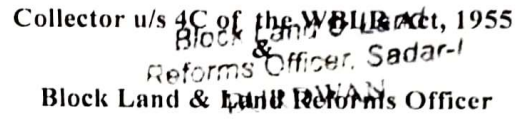 Collector u/s 4C of the WBLR Act, 1955
Block Land & Land
&
Reforms Officer, Sadar-I
Block Land & Land Reforms Officer